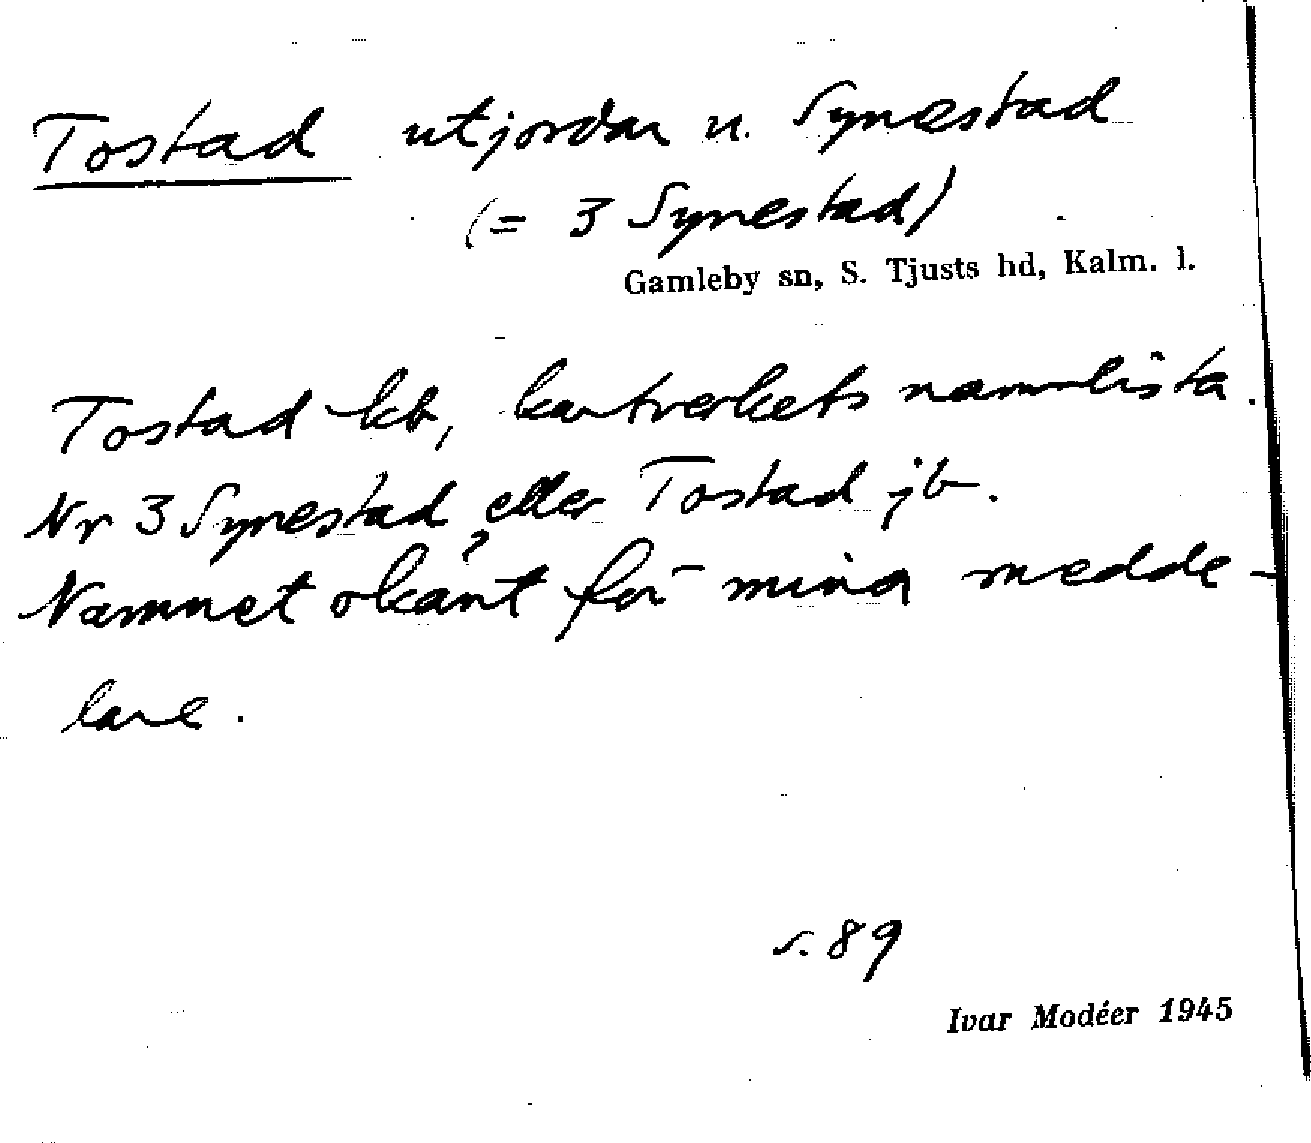 Tostad utjordar u. Synestad
(= 3 Synestad)
Gamleby sn, S. Tjusts hd, Kalm. l.
Tostad kb, kartverkets namnlista.
Nr 3 Synestad, eller Tostad jb.
Namnet okänt för mina medde-
lare.
s. 89
Ivar Modéer 1945